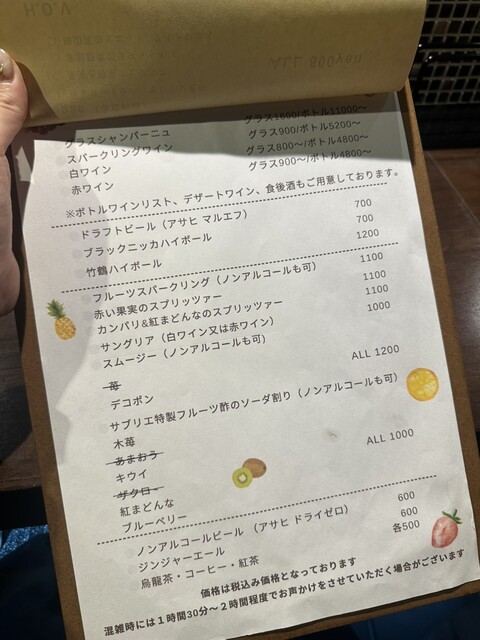 グラスシャンパーニュ グラス1600/ボトル11000〜
スパークリングワイン グラス900/ボトル5200〜
白ワイン グラス800〜/ボトル4800〜
赤ワイン グラス900〜/ボトル4800〜
※ボトルワインリスト、デザートワイン、食後酒もご用意しております。
ドラフトビール（アサヒ マルエフ） 700
ブラックニッカハイボール 700
竹鶴ハイボール 1200
フルーツスパークリング（ノンアルコールも可） 1100
赤い果実のスプリッツァー 1100
カンパリ&紅まどんなのスプリッツァー 1100
サングリア（白ワイン又は赤ワイン） 1000
スムージー（ノンアルコールも可)
苺 ALL 1200
デコポン
サブリエ特製フルーツ酢のソーダ割り（ノンアルコールも可）
木苺
あまおう ALL 1000
キウイ
ザクロ
紅まどんな
ブルーベリー
ノンアルコールビール （アサヒ ドライゼロ） 600
ジンジャーエール 600
烏龍茶・コーヒー・紅茶 各500
価格は税込み価格となっております
混雑時には１時間30分〜２時間程度でお声かけをさせていただく場合がございます